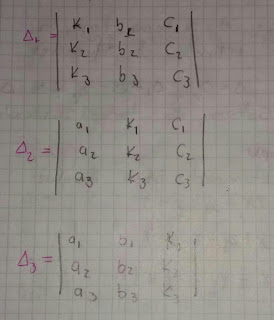 Δ₁ = | K₁ b₁ C₁ |
| K₂ b₂ C₂ |
| K₃ b₃ C₃ |
Δ₂ = | a₁ K₁ C₁ |
| a₂ K₂ C₂ |
| a₃ K₃ C₃ |
Δ₃ = | a₁ b₁ K₁ |
| a₂ b₂ K₂ |
| a₃ b₃ K₃ |